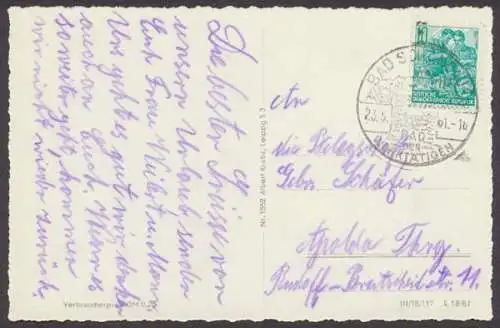 Die besten Grüsse von
unsern Urlaub senden
Euch Frau Wilet u. Mann.
Uns geht es gut mir denken
auch an Euch. Wenn es
so weiter geht, kommen
wir nicht wieder zurück.
Verbraucherpreis
Nr. 1552 Albert Kratz, Leipzig S 3
DEUTSCHE
DEMOKRATISCHE REPUBLIK
BAD
23.5. 61.-16
BAD
DER
WERKTÄTIGEN
An
die Belegsch
Gebr. Schäfer
Apolda Thrg.
Rudolf-Breitscheit-str. 11
III/18/117 A